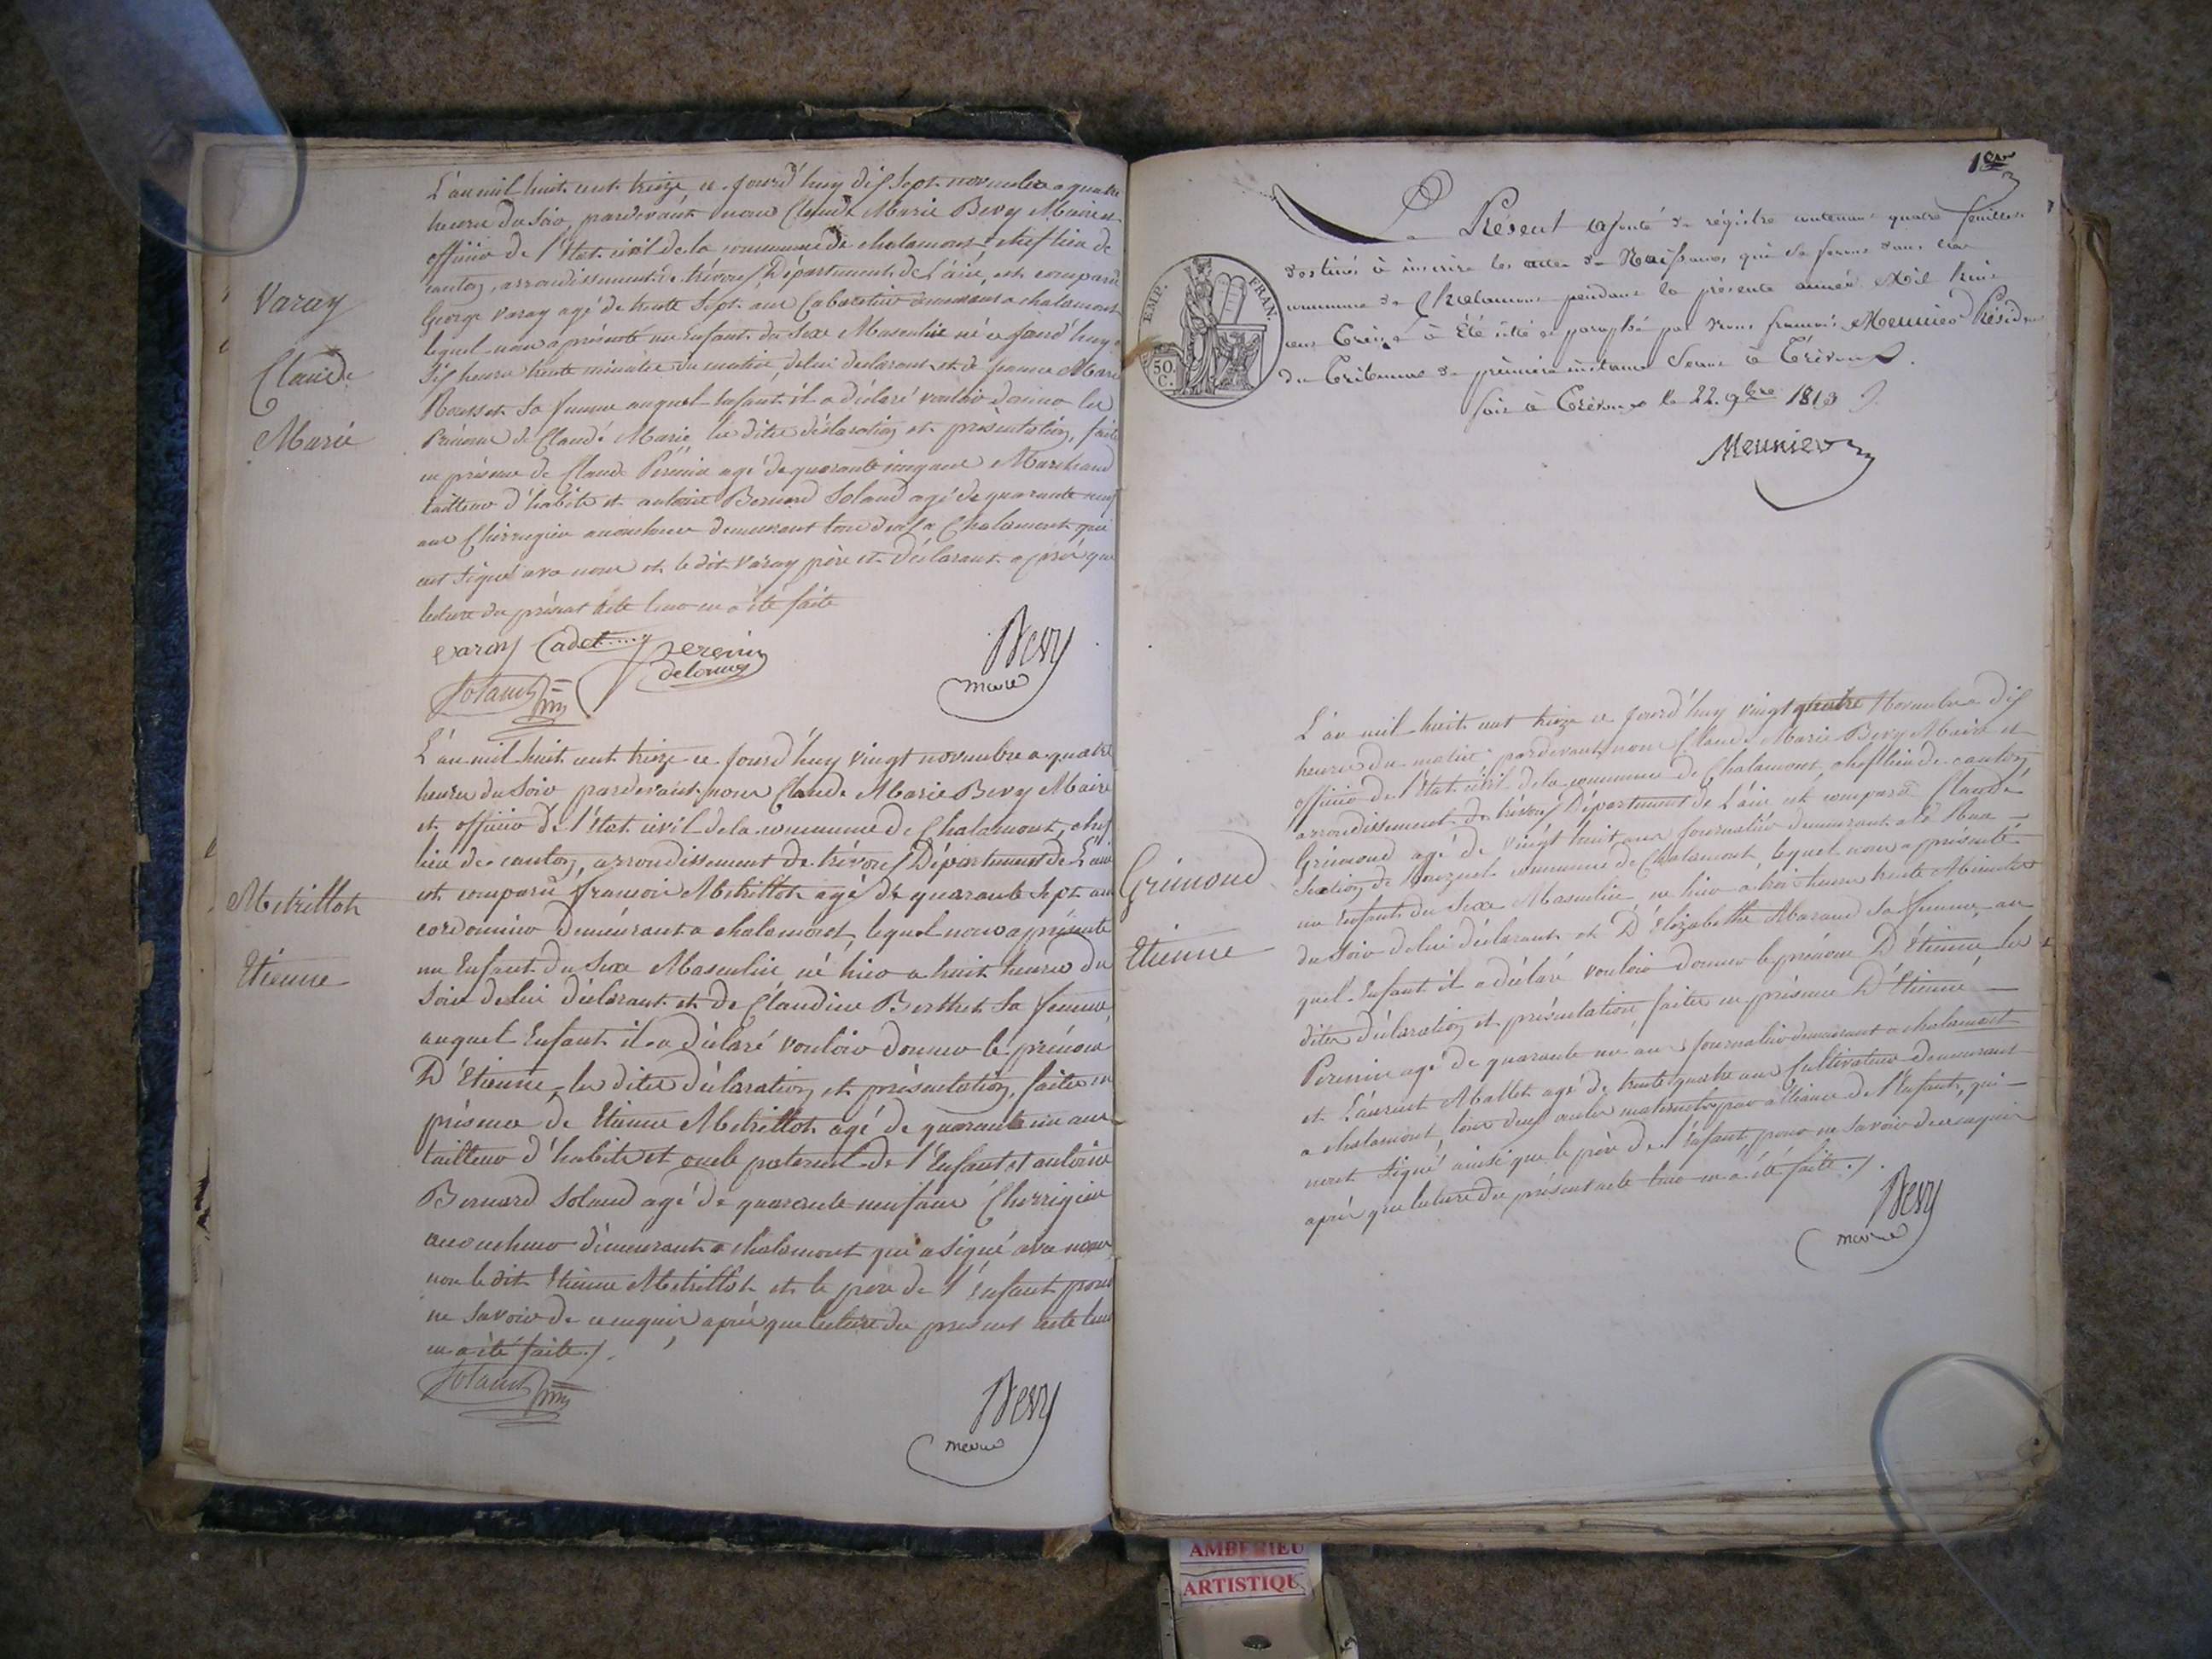 L'an mil huit cent treize ce jourd'huy dix sept novembre a quatre
heures du soir pardevant nous Claude Marie Bevy Maire et
officier de l'Etat civil de la commune de chalamont chef lieu de
canton, arrondissement de trévoux Département de L'ain, est comparu
George Varay agé de trente sept ans Cabaretier demeurant a chalamont
lequel nous a présenté un Enfant du Sexe Masculin né ce jourd'huy a
dix heures trente minutes du matin, de lui déclarant et de Marie
Rousset sa femme auquel Enfant il a déclaré vouloir donner les
Prénoms de Claude Marie, les dites déclaration et présentation, faites
en présence de Claude Pérénin agé de quarante cinq ans Marchand
tailleur d'habits et antoine Bernard Soland agé de quarante neuf
ans Chirurgien accoucheur demeurant tous deux a Chalamont qui
ont signé avec nous et le dit Varay père et déclarant après que
lecture du présent acte leur en a été faite
Varay
Claude
Marie
varay Cadet perenin
delorme
Soland
Bevy
maire
L'an mil huit cent treize ce jourd'huy vingt novembre a quatre
heures du soir pardevant nous Claude Marie Bevy Maire
et officier de l'état civil de la commune de Chalamont, chef
lieu de canton, arrondissement de trévoux Département de L'ain
est comparu françois Metrillot agé de quarante sept ans
cordonnier demeurant a chalamont, lequel nous a présenté
un Enfant du Sexe Masculin né hier a huit heures du
soir de lui déclarant et de Claudine Berthet sa femme,
auquel Enfant il a déclaré vouloir donner le prénom
D'Etienne, les dites déclaration et présentation, faites en
présence de Etienne Metrillot agé de quarante un ans
tailleur d'habits et oncle paternel de l'Enfant et antoine
Bernard Soland agé de quarante neuf ans Chirrigien
accoucheur demeurant a chalamont qui a signé avec nous
non le dit Etienne Metrillot et le père de l'Enfant pour
ne savoir de ce enquis, après que lecture du présent acte leur
en a été faite ./.
Metrillot
Etienne
Soland
Bevy
maire
1er
Le Présent ajouté de régistre contenant quatre feuilles
destinés à inscrire les actes de Naissances qui se feront dans la
commune de Chalamont pendant la présente année Mil huit
cent Treize à été coté et paraphé par Nous francois Meunier Président
du Tribunal de première instance Séant à Trévoux.
fait à Trévoux le 22. 9bre 1813
Meunier
EMP. FRAN.
50
C.
L'an mil huit cent treize ce jourd'huy vingt quatre Novembre dix
heures du matin, pardevant nous Claude Marie Bevy Maire et
officier de l'Etat civil de la commune de Chalamont, chef lieu de canton
arrondissement de trévoux Département de L'ain est comparu Claude
Grimond agé de vingt huit ans journalier demeurant
section de commune de Chalamont, lequel nous a présenté
un Enfant du Sexe Masculin, né hier a trois heures trente Minutes
du soir de lui déclarant et D'Elizabethe sa femme, au
quel Enfant il a déclaré vouloir donner le prénom D'Etienne, les
dites déclaration et présentation, faites en présence D'Etienne
Perenin agé de quarante un ans journalier demeurant a chalamont
et Laurent Mallet agé de trente quatre ans Cultivateur demeurant
a chalamont, tous deux oncles maternels par alliance de l'Enfant, qui
n'ont signé ainsi que le père de l'Enfant pour ne savoir de ce enquis
après que lecture du présent acte leur en a été faite ./.
Grimond
Etienne
Bevy
maire
AMBERIEU
ARTISTIQUE